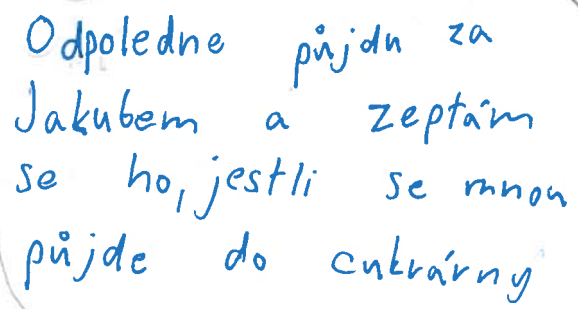 Odpoledne půjdu za
Jakubem a zeptám
se ho, jestli se mnou
půjde do cukrárny